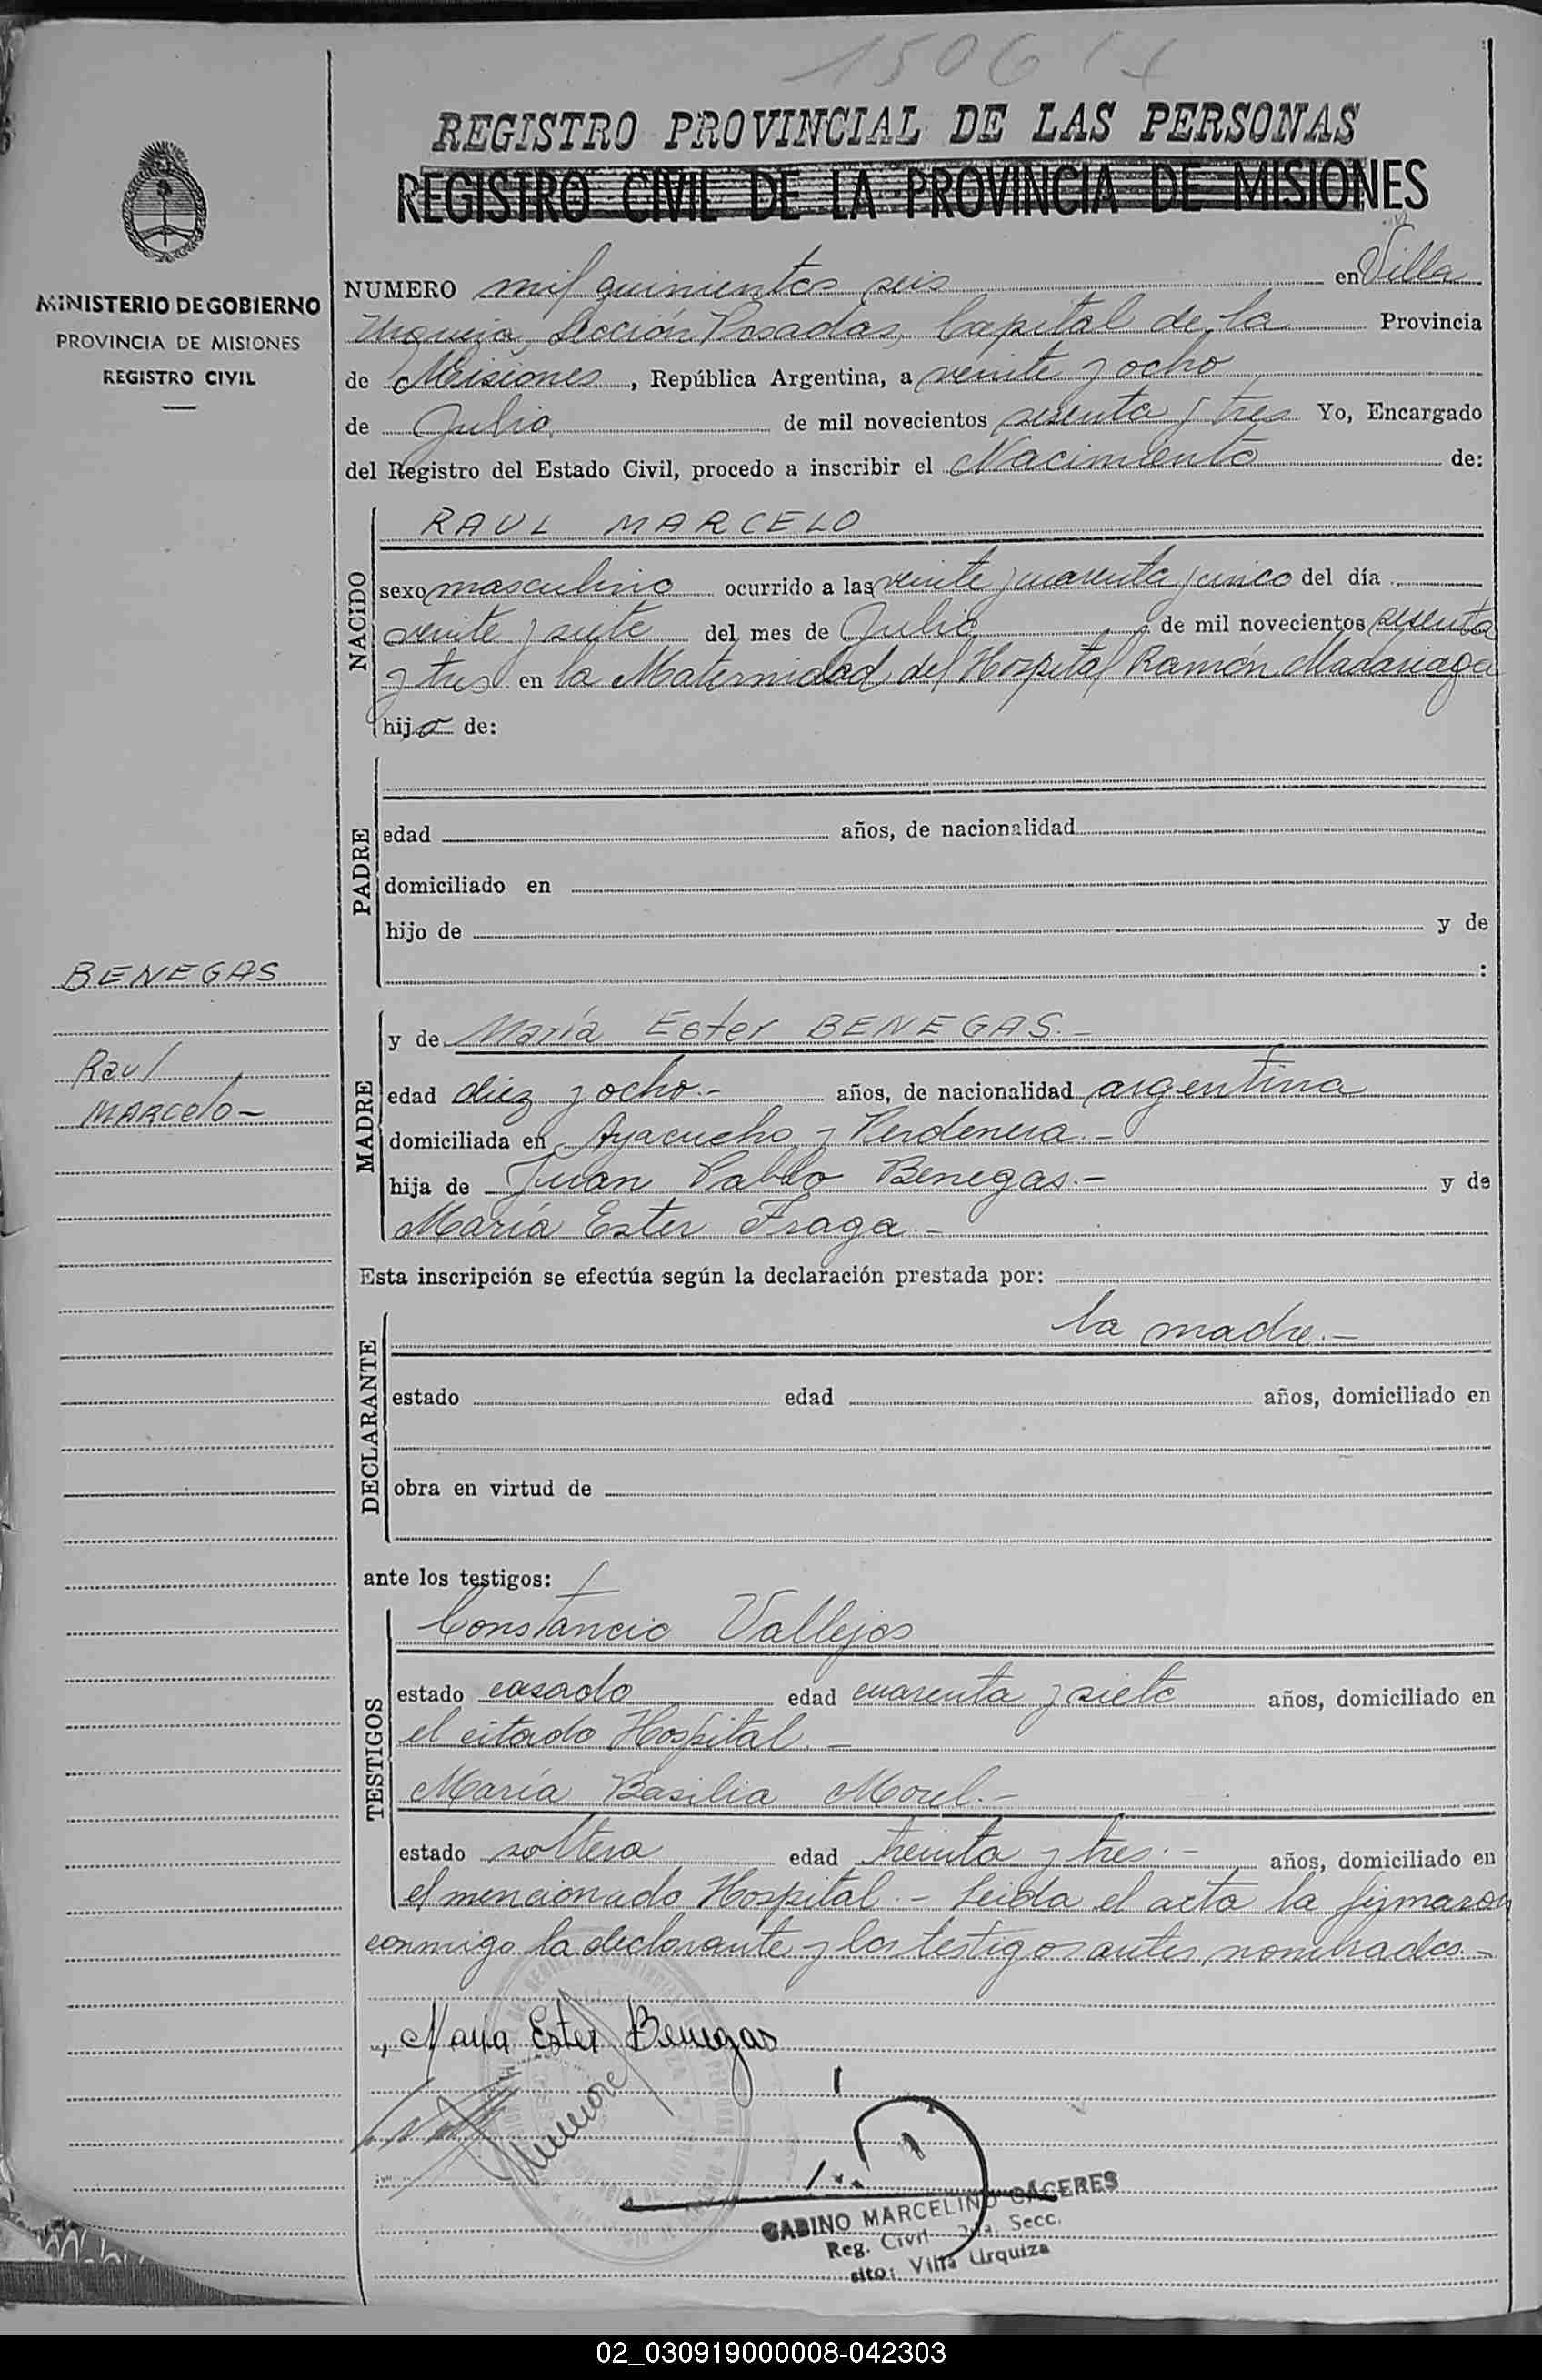 1506
REGISTRO PROVINCIAL DE LAS PERSONAS
REGISTRO CIVIL DE LA PROVINCIA DE MISIONES
MINISTERIO DE GOBIERNO
PROVINCIA DE MISIONES
REGISTRO CIVIL
NUMERO mil quinientos seis en Villa
Urquiza, Sección Posadas, Capital de la Provincia
de Misiones, República Argentina, a veinte y ocho
de Julio de mil novecientos sesenta y tres Yo, Encargado
del Registro del Estado Civil, procedo a inscribir el Nacimiento de:
NACIDO
RAUL MARCELO
sexo masculino ocurrido a las veinte y cuarenta y cinco del día
veinte y siete del mes de Julio de mil novecientos sesenta
y tres en la Maternidad del Hospital Ramón Madariaga
hijo de:
PADRE
edad años, de nacionalidad
domiciliado en
hijo de y de
:
BENEGAS
Raul
MARCelo-
MADRE
y de María Ester BENEGAS.-
edad diez y ocho.- años, de nacionalidad argentina
domiciliada en Ayacucho y Perdenera.-
hija de Juan Pablo Benegas.- y de
María Ester Fraga.-
Esta inscripción se efectúa según la declaración prestada por:
DECLARANTE
la madre.-
estado edad años, domiciliado en
obra en virtud de
ante los testigos:
TESTIGOS
Constancio Vallejos
estado casado edad cuarenta y siete años, domiciliado en
el citado Hospital.-
María Basilia Morel.-
estado soltera edad treinta y tres.- años, domiciliado en
el mencionado Hospital.- Leida el acta la firmaron
conmigo la declarante y los testigos antes nombrados.-
Maria Ester Benegas
GABINO MARCELINO CACERES
Reg. Civil 2da. Secc.
sito: Villa Urquiza
02_030919000008-042303